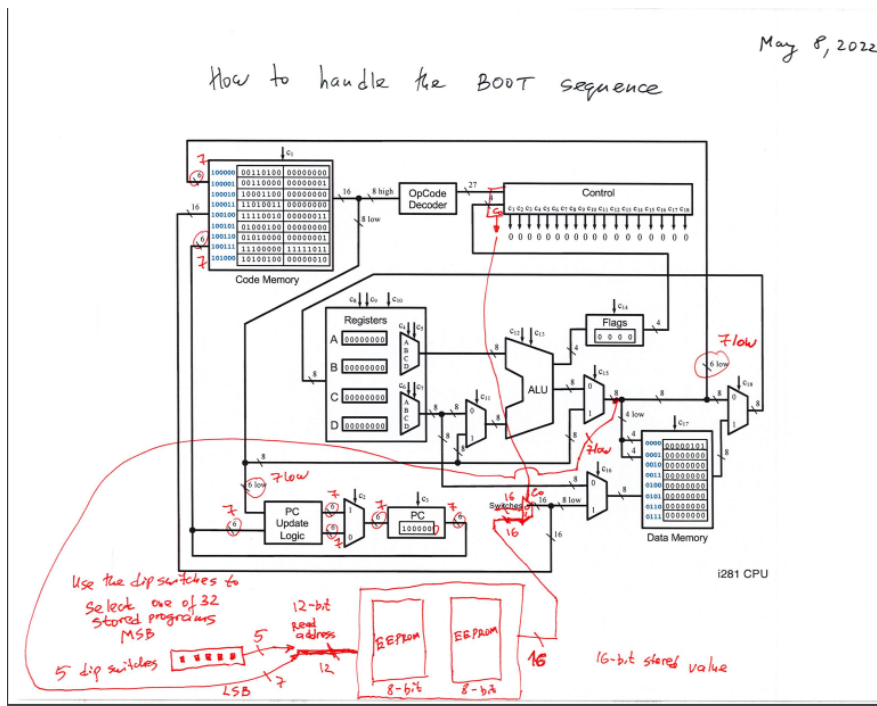 May 8, 2022
How to handle the BOOT sequence
7
c1
6
100000 00110100 00000000
100001 00110000 00000001
100010 10001100 00000000
100011 11010011 00000000
100100 11110010 00000011
100101 01000100 00000000
100110 01010000 00000001
100111 11100000 11111011
101000 10100100 00000010
16
6
7
Code Memory
16
8 high
8 low
OpCode
Decoder
27
4
C0
Control
c1 c2 c3 c4 c5 c6 c7 c8 c9 c10 c11 c12 c13 c14 c15 c16 c17 c18
0 0 0 0 0 0 0 0 0 0 0 0 0 0 0 0 0 0
c8 c9 c10
Registers
A 00000000
B 00000000
C 00000000
D 00000000
c4 c5
A
B
C
D
c6 c7
A
B
C
D
8
8
8
8
c11
0
1
8
8
8
c12 c13
ALU
4
8
c14
Flags
0 0 0 0
4
c15
0
1
8
8
8
8
7 low
6 low
c18
0
1
8
8
4 low
4
4
c17
0000 00000101
0001 00000000
0010 00000000
0011 00000000
0100 00000000
0101 00000000
0110 00000000
0111 00000000
Data Memory
7 low
8
7 low
6 low
7
6
PC
Update
Logic
7
6
6
7
c2
1
0
7
6
c3
PC
100000 0
7
6
16
C0
Switches
16
16
8 low
16
8
c16
0
1
8
i281 CPU
Use the dip switches to
select one of 32
stored programs
MSB
5 dip switches
5
LSB
7
12-bit
Read
address
12
EEPROM
EEPROM
8-bit
8-bit
16
16-bit stored value